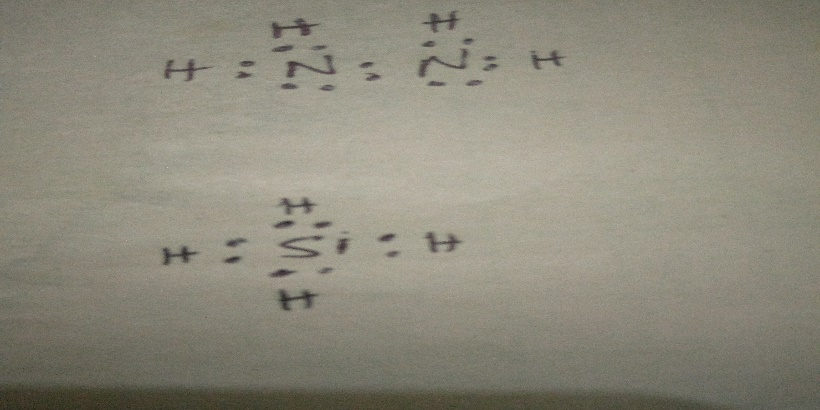 H H
H : N : N : H
H
H : Si : H
H